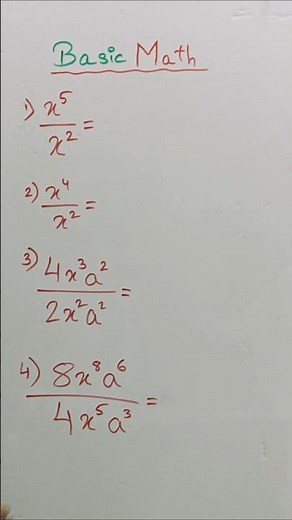 Basic Math
1) x⁵/x² =
2) x⁴/x² =
3) 4x³a²/2x²a² =
4) 8x⁸a⁶/4x⁵a³ =